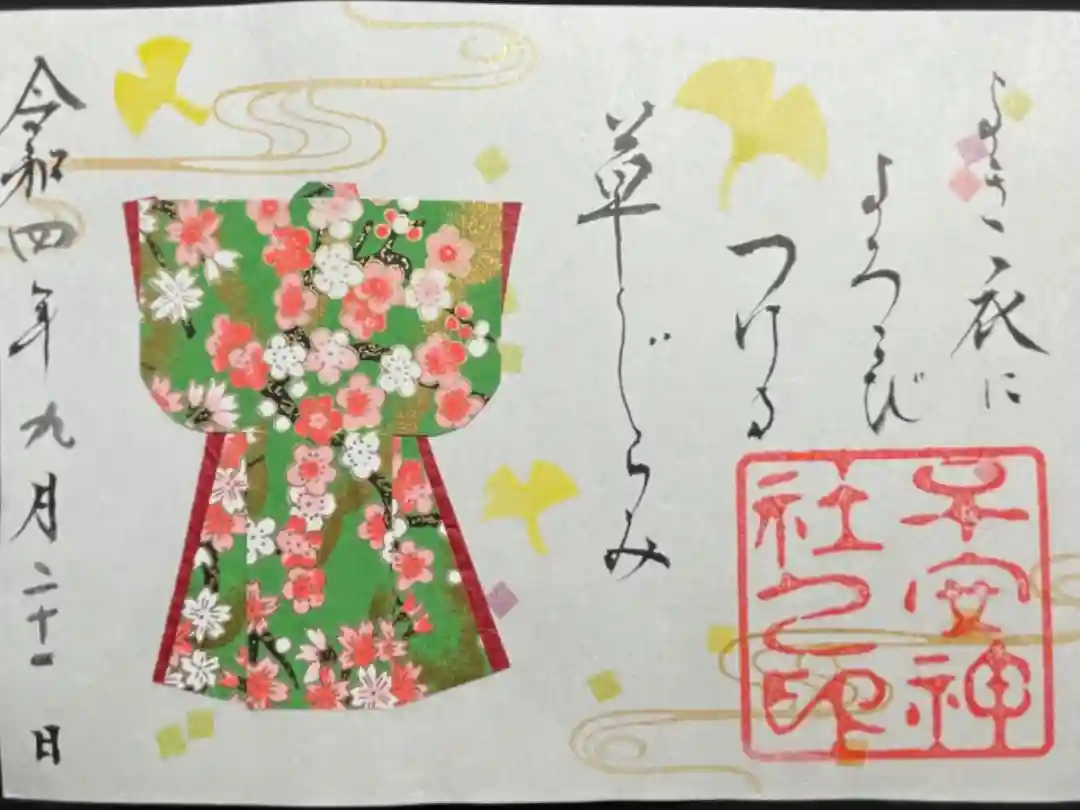 よき衣に
よろこび
つける
草じらみ
子安神
社之印
令和四年九月二十一日